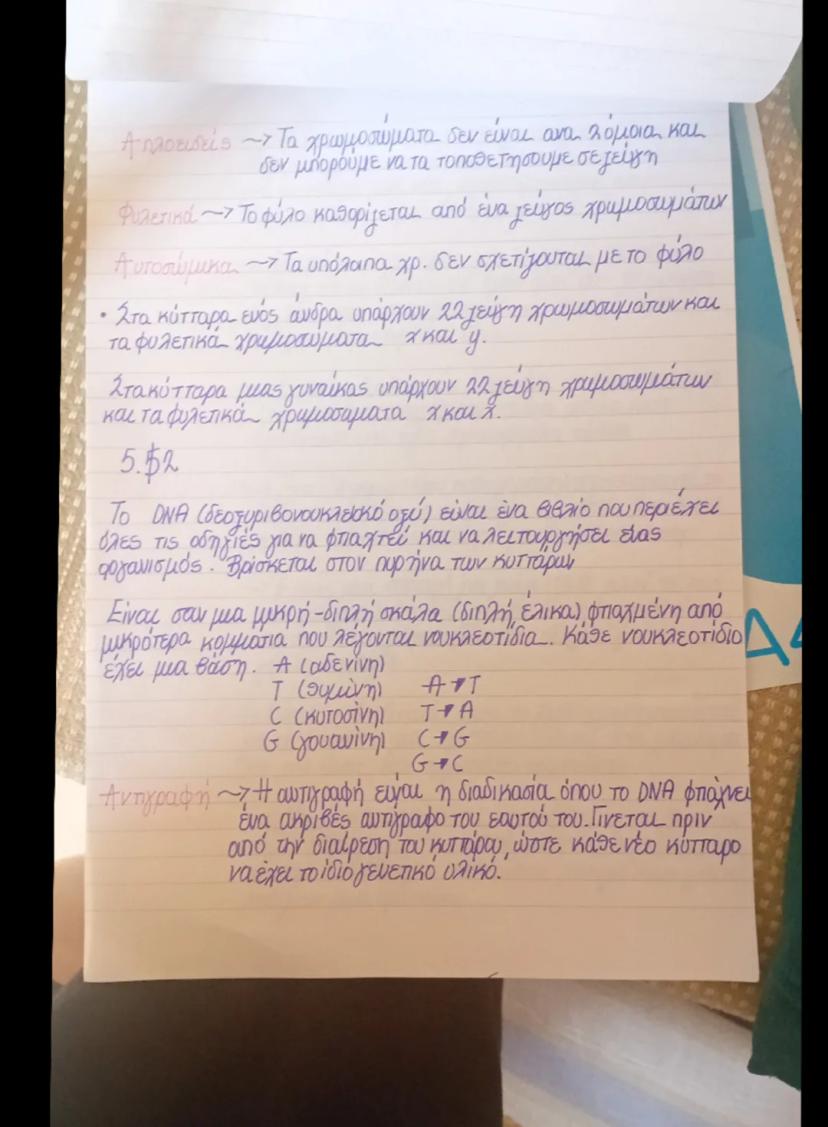 Απλοειδείς → Τα χρωμοσώματα δεν είναι ανα 2 όμοια και
δεν μπορούμε να τα τοποθετήσουμε σε ζεύγη
Φυλετικά → Το φύλο καθορίζεται από ένα ζεύγος χρωμοσωμάτων
Αυτοσωμικα → Τα υπόλοιπα χρ. δεν σχετίζονται με το φύλο
• Στα κύτταρα ενός άνδρα υπάρχουν 22 ζεύγη χρωμοσωμάτων και
τα φυλετικά χρωμοσώματα x και y.
Στα κύτταρα μιας γυναίκας υπάρχουν 22 ζεύγη χρωμοσωμάτων
και τα φυλετικά χρωμοσωματα x και x.
5.$2
Το DNA (δεοξυριβονουκλεικό οξύ) είναι ένα βιβλίο που περιέχει
όλες τις οδηγίες για να φτιαχτεί και να λειτουργήσει ένας
οργανισμός. Βρίσκεται στον πυρήνα των κυττάρων
Είναι σαν μια μικρή-διπλή σκάλα (διπλή έλικα) φτιαγμένη από
μικρότερα κομμάτια που λέγονται νουκλεοτίδια. Κάθε νουκλεοτίδιο
έχει μια βάση. A (αδενίνη)
T (θυμίνη) A→T
C (κυτοσίνη) T→A
G (γουανίνη) C→G
G→C
Αντιγραφή → Η αντιγραφή είναι η διαδικασία όπου το DNA φτιάχνει
ένα ακριβές αντίγραφο του εαυτού του. Γίνεται πριν
από την διαίρεση του κυττάρου, ώστε κάθε νέο κύτταρο
να έχει το ίδιο γενετικό υλικό.
A4